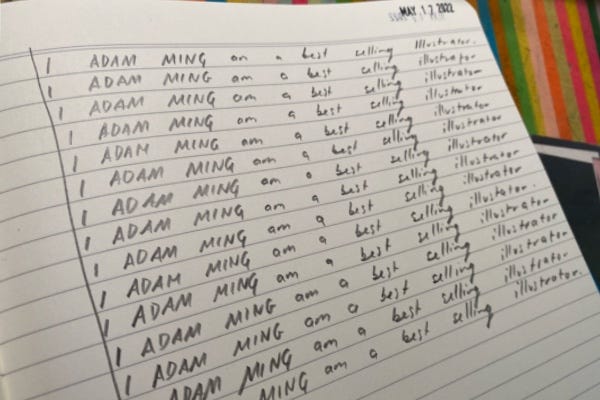 MAY 17 2022
I ADAM MING am a best selling Illustrator.
I ADAM MING am a best selling illustrator
I ADAM MING am a best selling illustrator
I ADAM MING am a best selling illustrator
I ADAM MING am a best selling illustrator
I ADAM MING am a best selling illustrator
I ADAM MING am a best selling illustrator
I ADAM MING am a best selling illustrator
I ADAM MING am a best selling illustator.
I ADAM MING am a best selling illustrator
I ADAM MING am a best selling illustrator
I ADAM MING am a best selling illustrator
ADAM MING am a best selling illustrator.
MING am a best selling